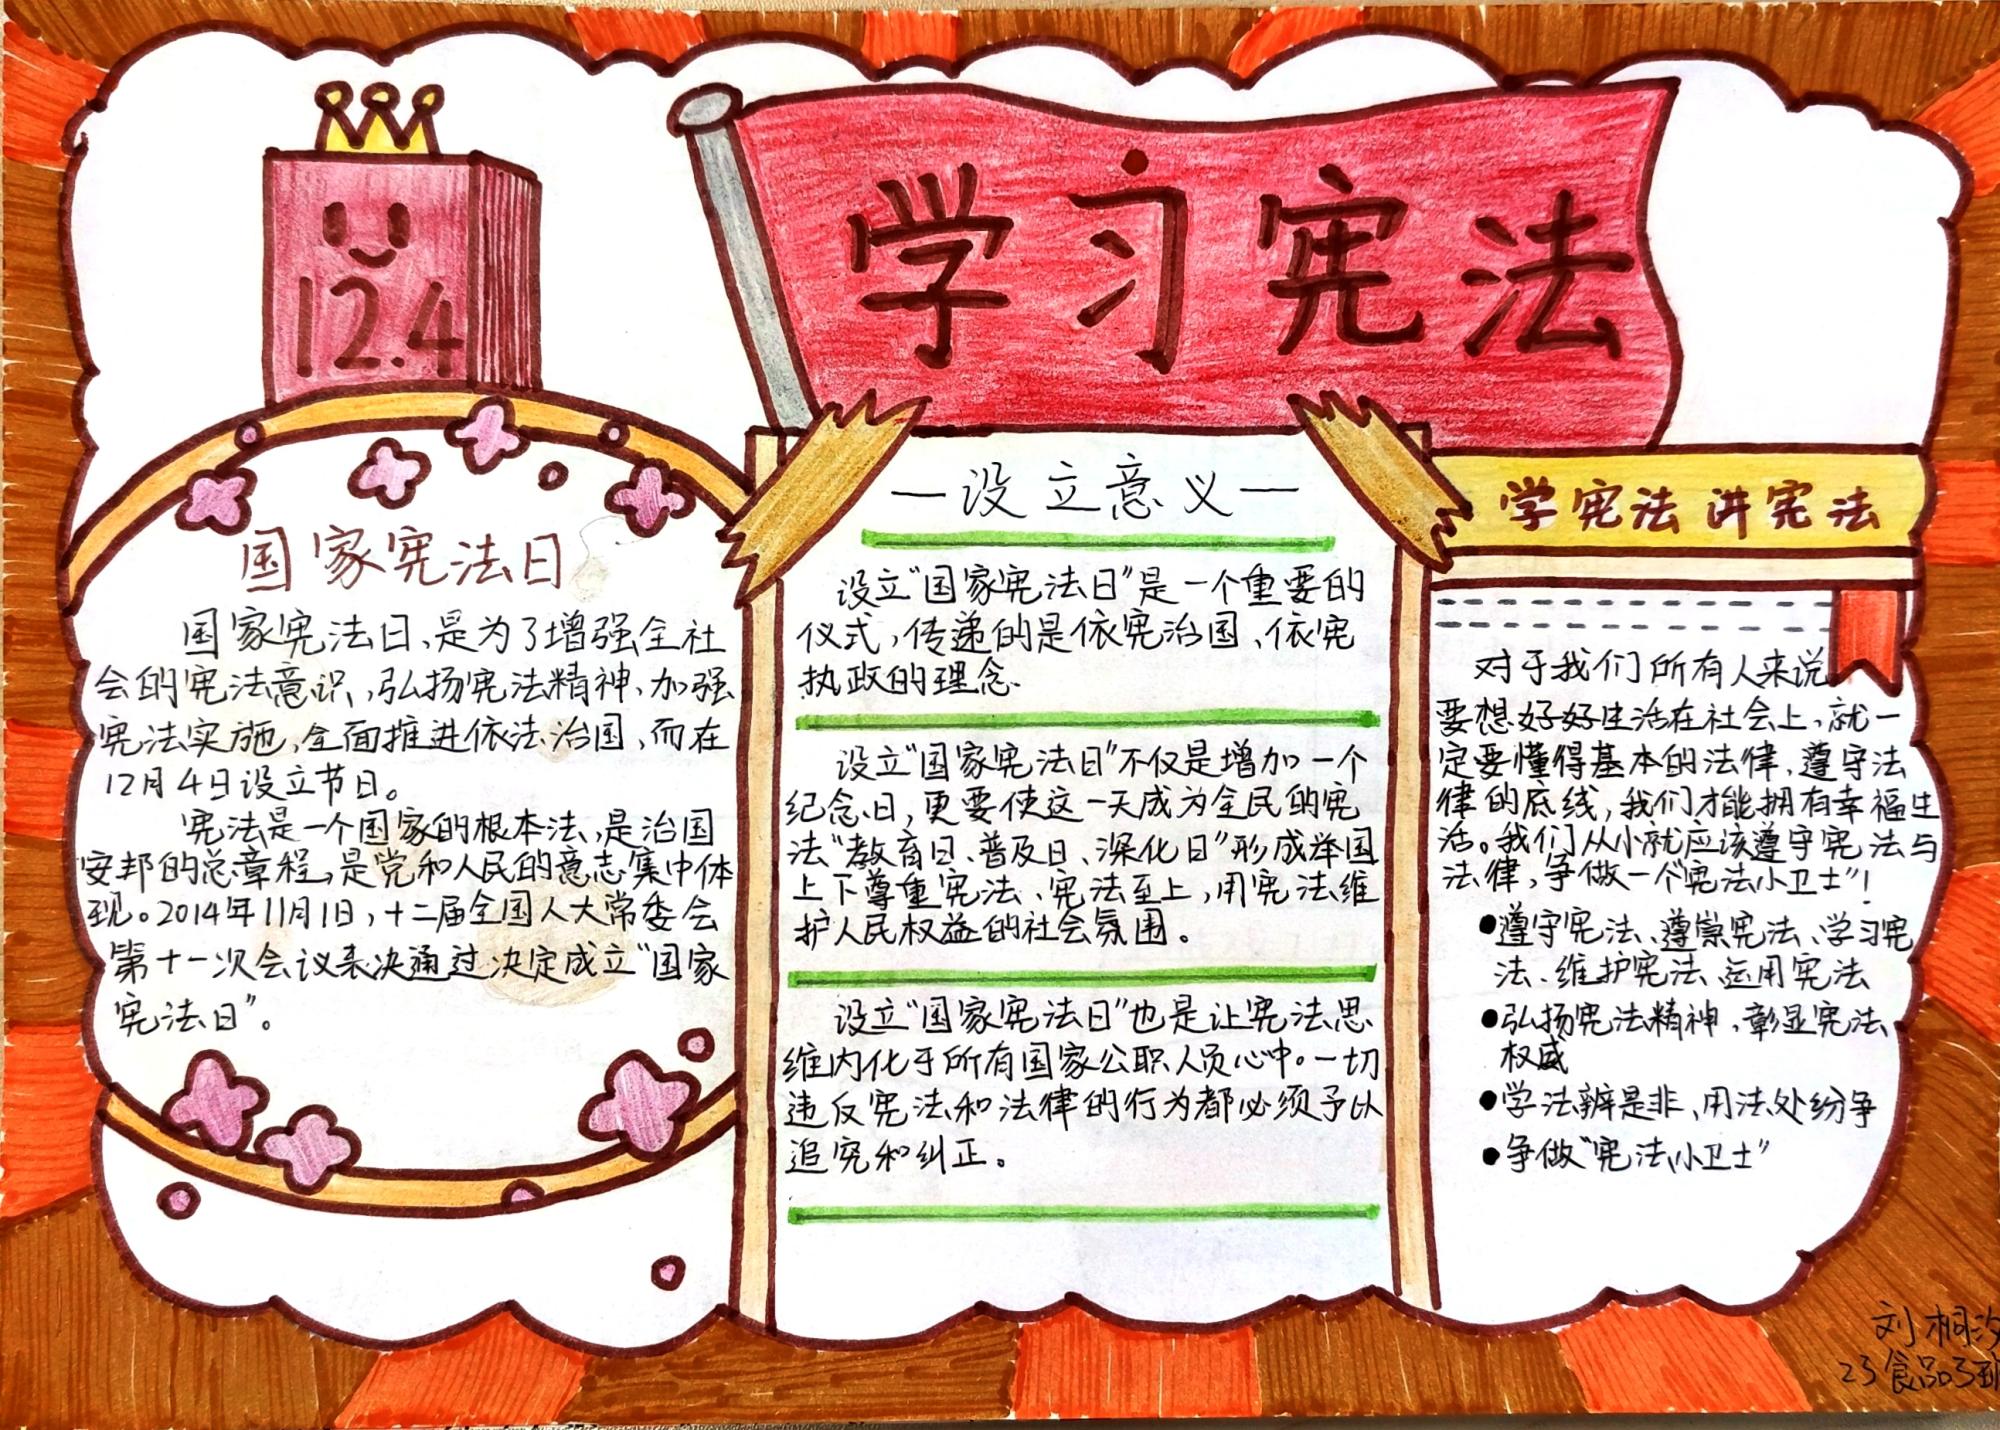 12.4
学习宪法
国家宪法日
国家宪法日,是为了增强全社
会的宪法意识,弘扬宪法精神,加强
宪法实施,全面推进依法治国,而在
12月4日设立节日。
宪法是一个国家的根本法,是治国
安邦的总章程,是党和人民的意志集中体
现。2014年11月1日,十二届全国人大常委会
第十一次会议表决通过决定成立“国家
宪法日”。
—设立意义—
设立“国家宪法日”是一个重要的
仪式,传递的是依宪治国、依宪
执政的理念.
设立“国家宪法日”不仅是增加一个
纪念日,更要使这一天成为全民的宪
法“教育日、普及日、深化日”形成举国
上下尊重宪法、宪法至上,用宪法维
护人民权益的社会氛围。
设立“国家宪法日”也是让宪法思
维内化于所有国家公职人员心中。一切
违反宪法和法律的行为都必须予以
追究和纠正。
学宪法 讲宪法
对于我们所有人来说
要想好好生活在社会上,就一
定要懂得基本的法律,遵守法
律的底线,我们才能拥有幸福生
活。我们从小就应该遵守宪法与
法律,争做一个“宪法小卫士”!
●遵守宪法、遵崇宪法、学习宪
法、维护宪法、运用宪法
●弘扬宪法精神,彰显宪法
权威
●学法辨是非、用法处纷争
●争做“宪法小卫士”
刘桐汐
23食品3班